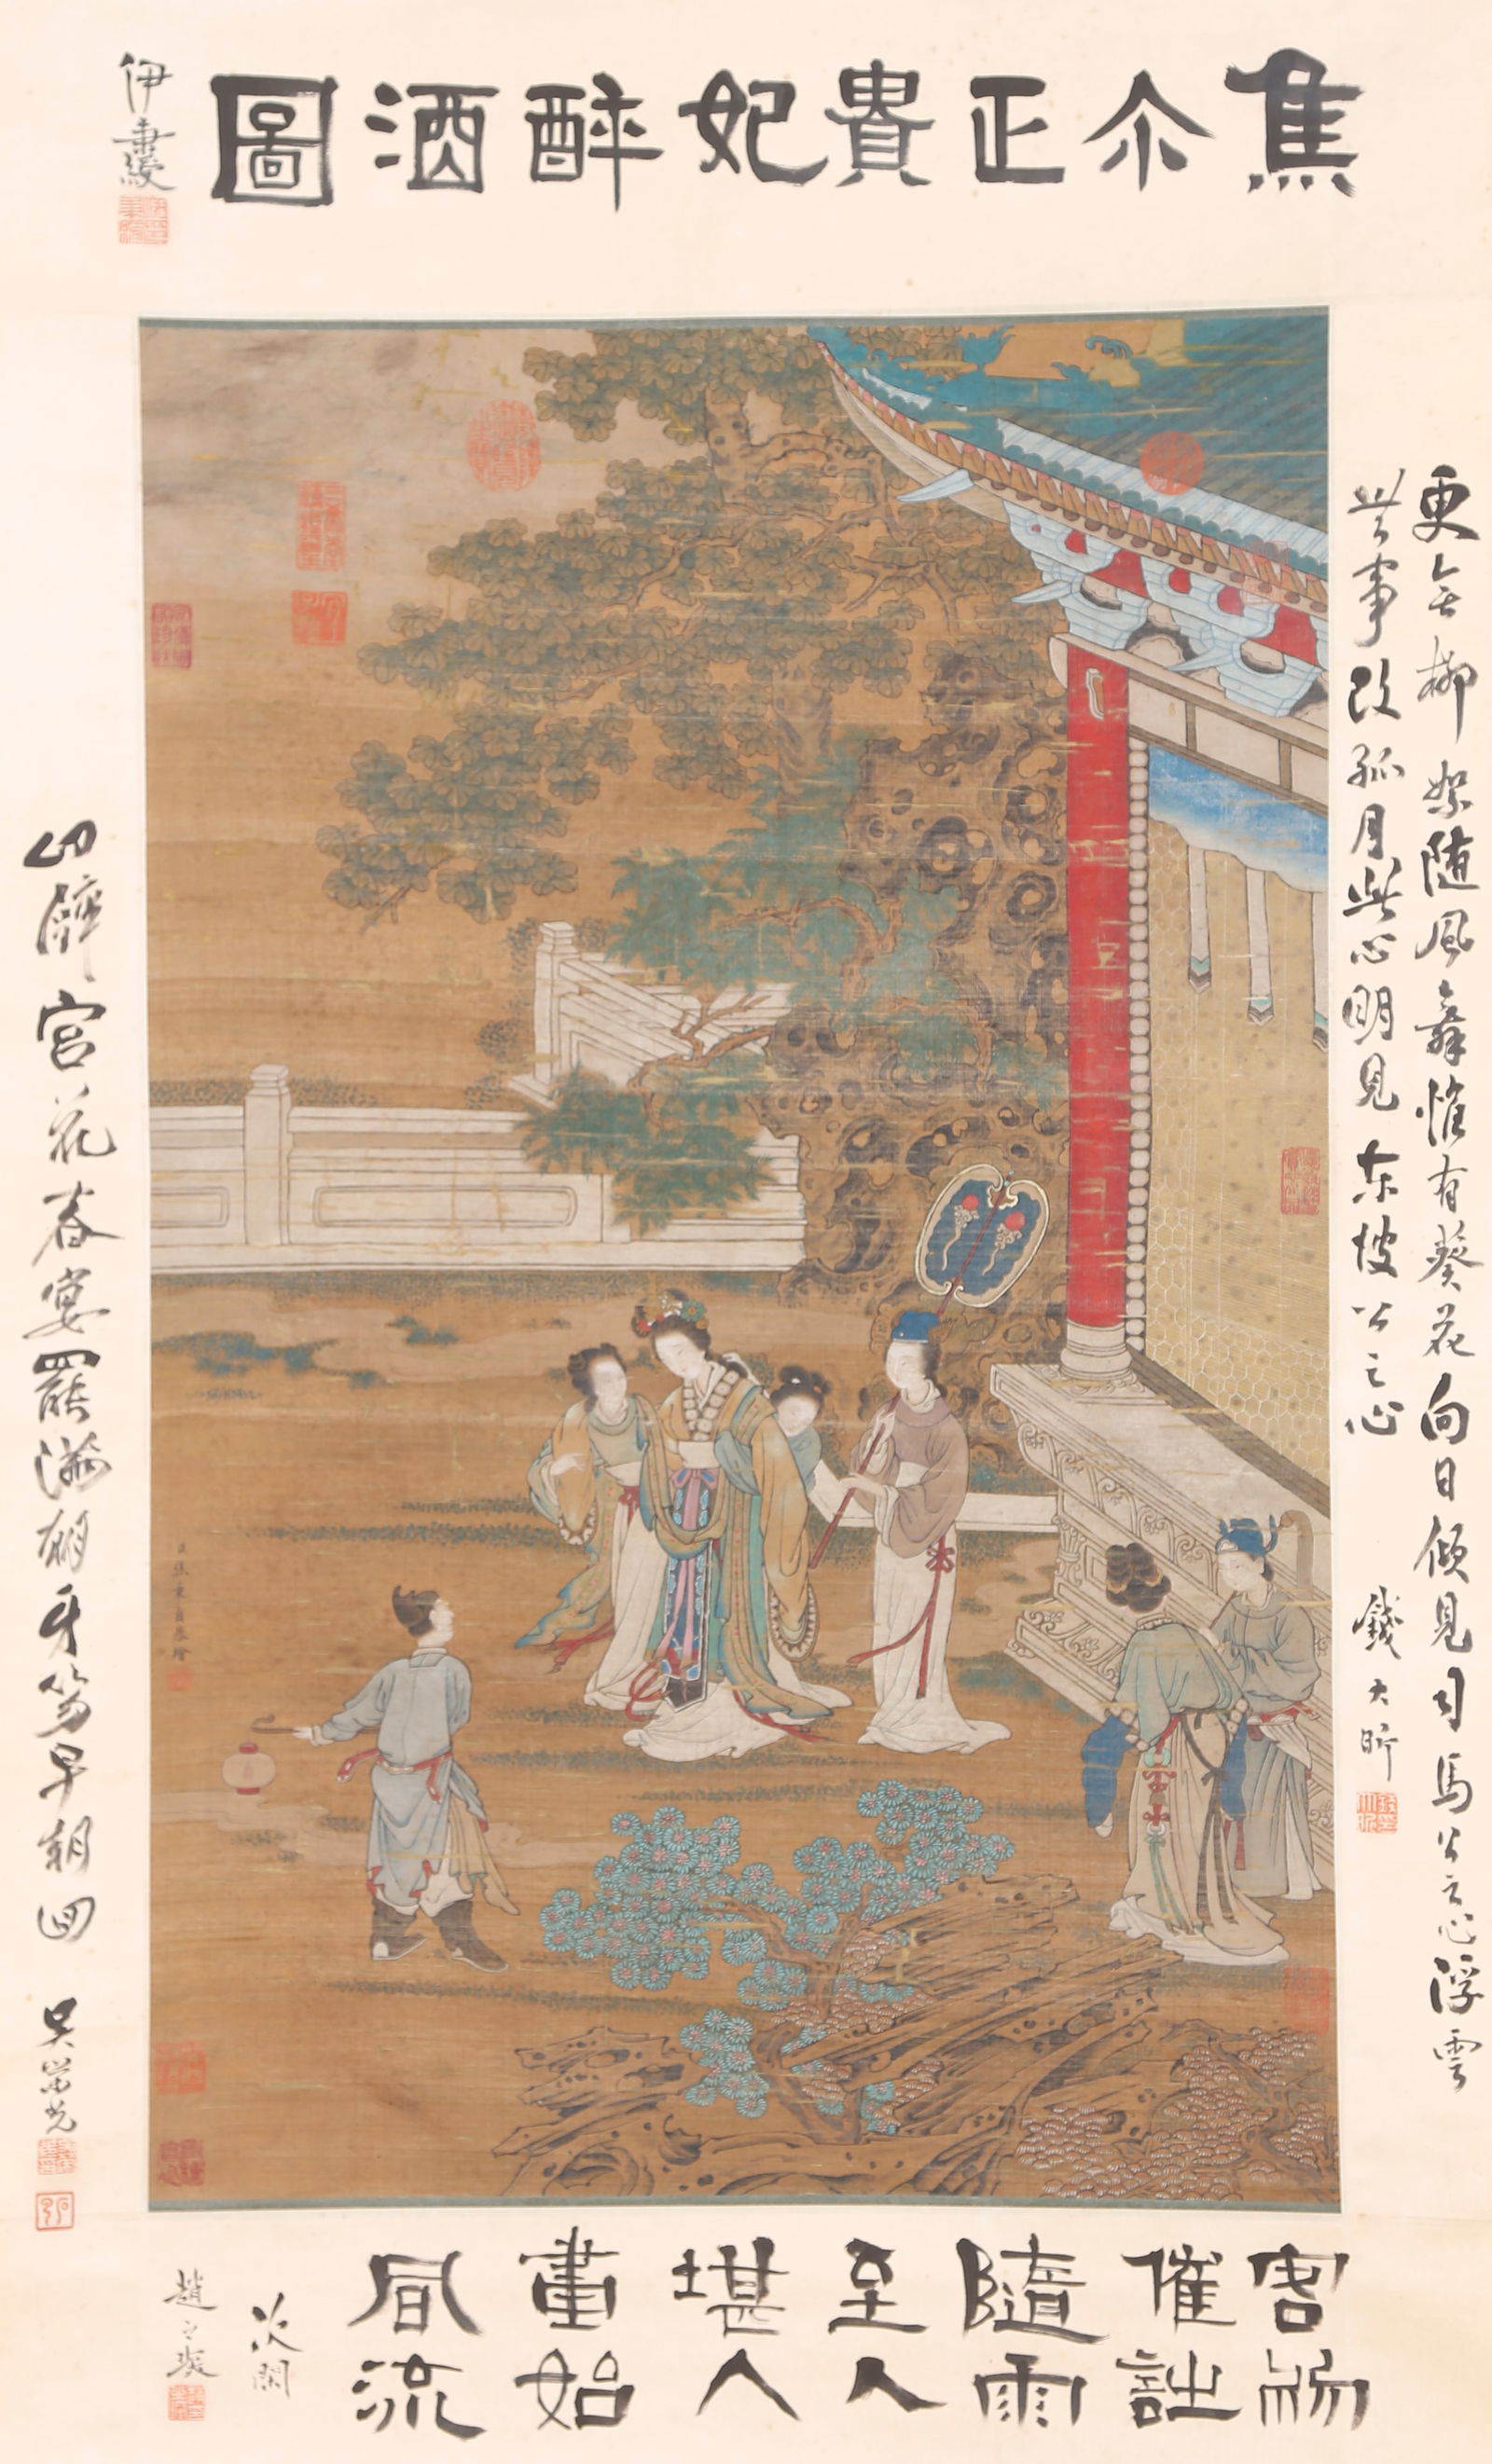 焦尒正貴妃醉酒圖
伊秉綬
更無柳絮随風舞惟有葵花向日傾見司馬公之心浮雲
世事改孤月此心明見東坡公之心
錢大昕
醉宮花春宴罷滿
牙笏早朝回
吳榮光
客觴催詩隨雨至人堪入畫始風流
次閑
趙之琛